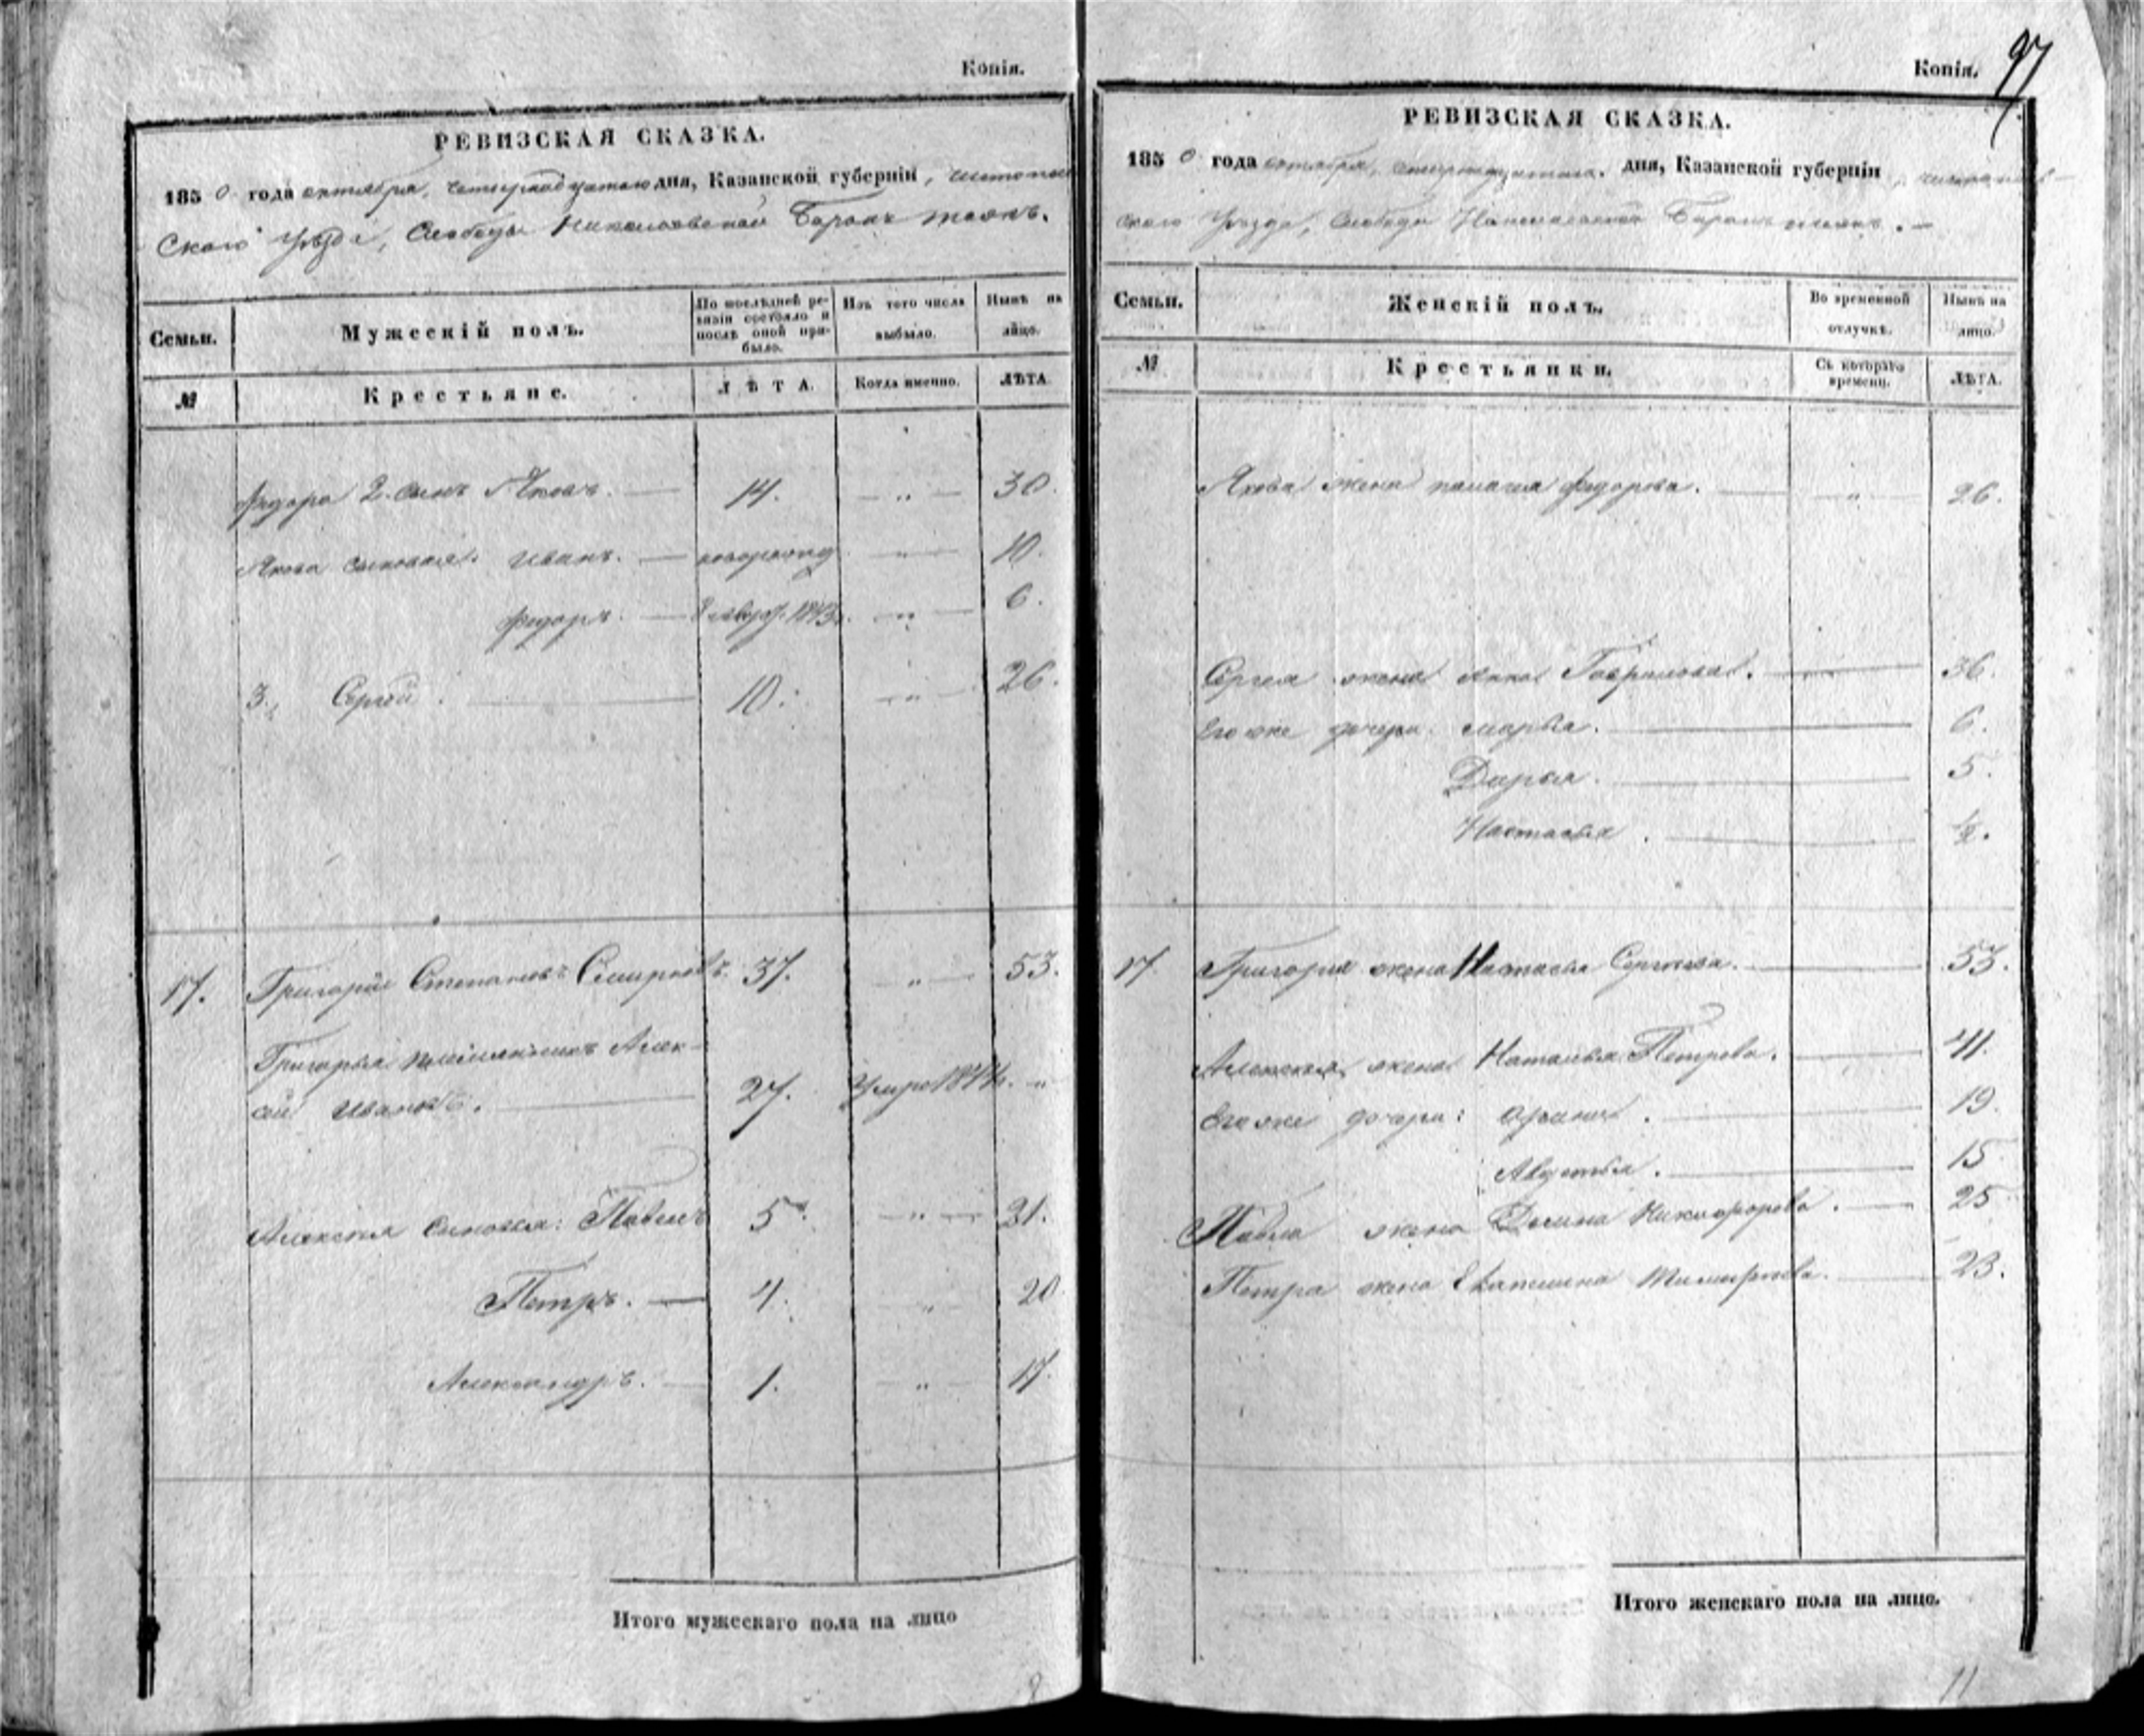 Копія.
РЕВИЗСКАЯ СКАЗКА.
1850 года октября, четырнадцатаго дня, Казанской губерніи,
скаго уѣзда, Слободы Николаевской Баранъ тожъ.
Семьи.
Мужескій полъ.
По послѣдней ре-
визіи состояло и
послѣ оной при-
было.
Изъ того числа
выбыло.
Нынѣ на
лицо.
№
Крестьяне.
ЛѢТА.
Когда именно.
ЛѢТА
Федора 2. сынъ Яковъ. 14. 30.
Якова сыновья: Иванъ. 10.
Федоръ. 1843 6.
3., Сергей. 10. 26.
17. Григорій Степановъ Смирновъ. 37. 53.
Григорья Алек-
сей Ивановъ. 27. Умре 184
Алексея сыновья: Павелъ 5. 21.
Петръ. 4. 20
Александръ. 1. 17.
Итого мужескаго пола на лицо
8
Копія. 97
РЕВИЗСКАЯ СКАЗКА.
1850 года октября, четырнадцатаго дня, Казанской губерніи,
скаго уѣзда, Слободы Николаевской Баранъ тожъ.
Семьи.
Женскій полъ.
Во временной
отлучкѣ.
Нынѣ на
лицо.
№
Крестьянки.
Съ котораго
времени.
ЛѢТА.
Якова жена Федорова. 26.
Сергея жена Анна Гаврилова. 36.
Его же дочери: Марья. 6.
Дарья. 5.
Настасья. ½.
17. Григорья жена Настасья Сергеева. 53.
Алексея жена Наталья Петрова. 41.
Его же дочери: 19.
15
Павла жена Никифорова. 25
Петра жена 23.
Итого женскаго пола на лицо.
11